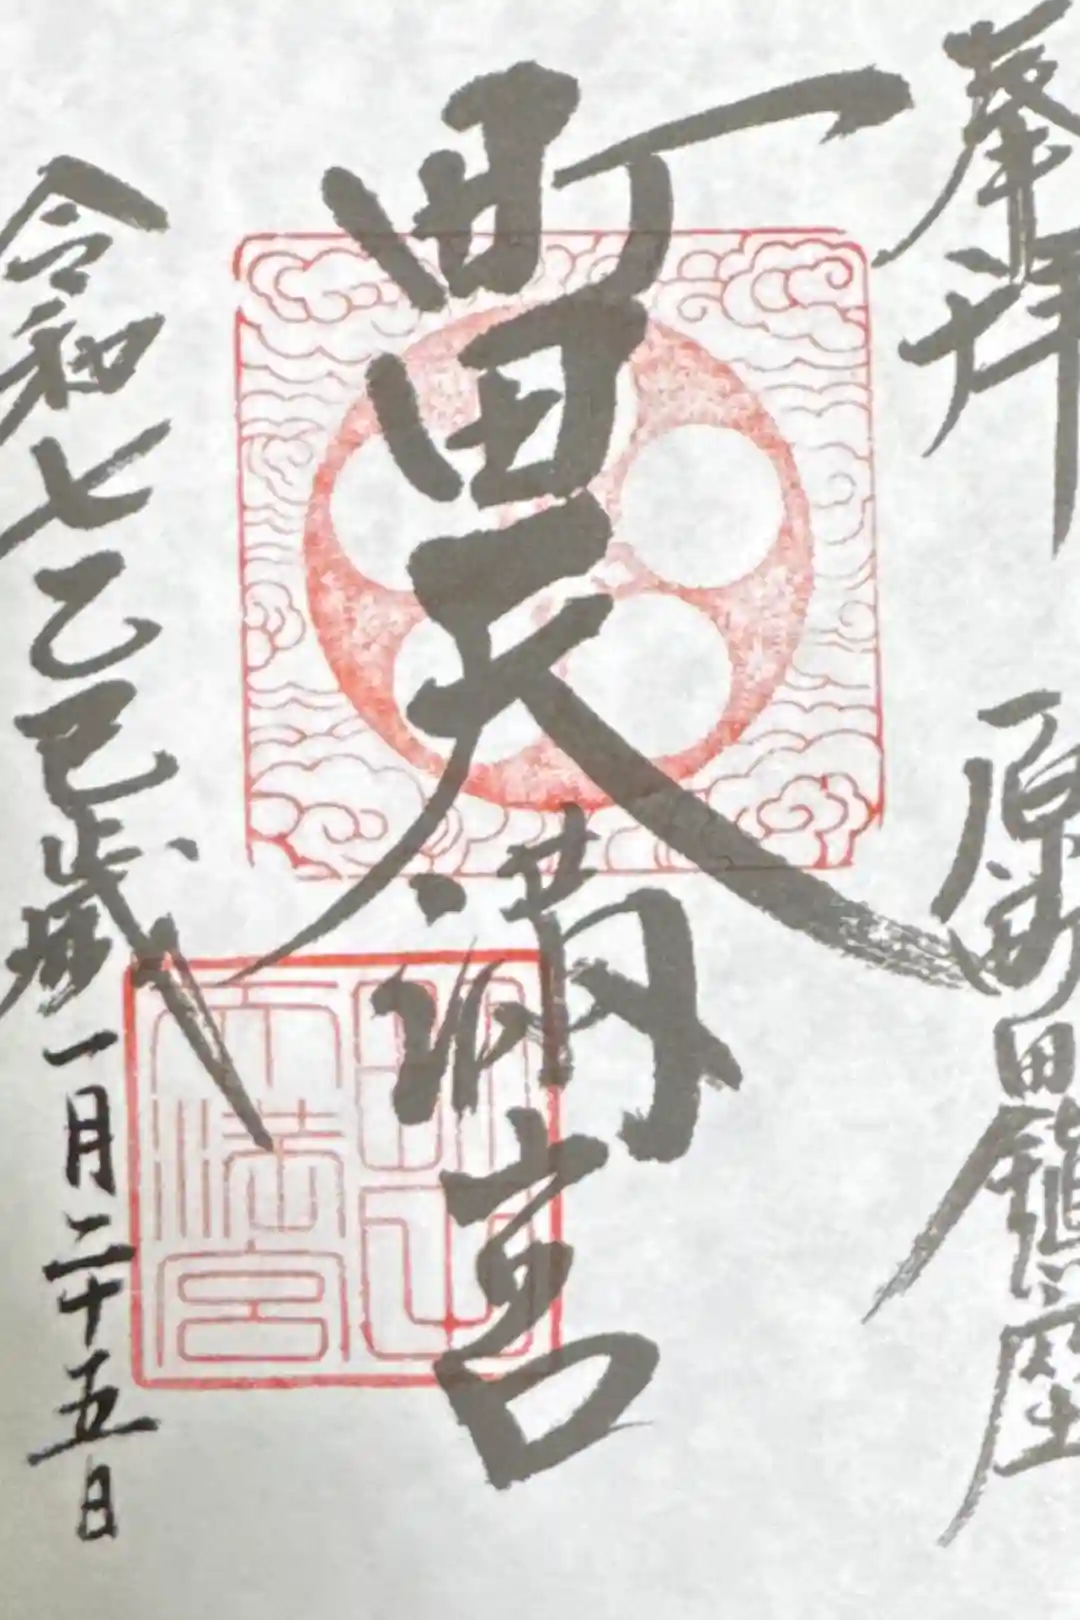 奉拝 原町田鎮座
町田天満宮
天満宮
令和七乙巳歳一月二十五日